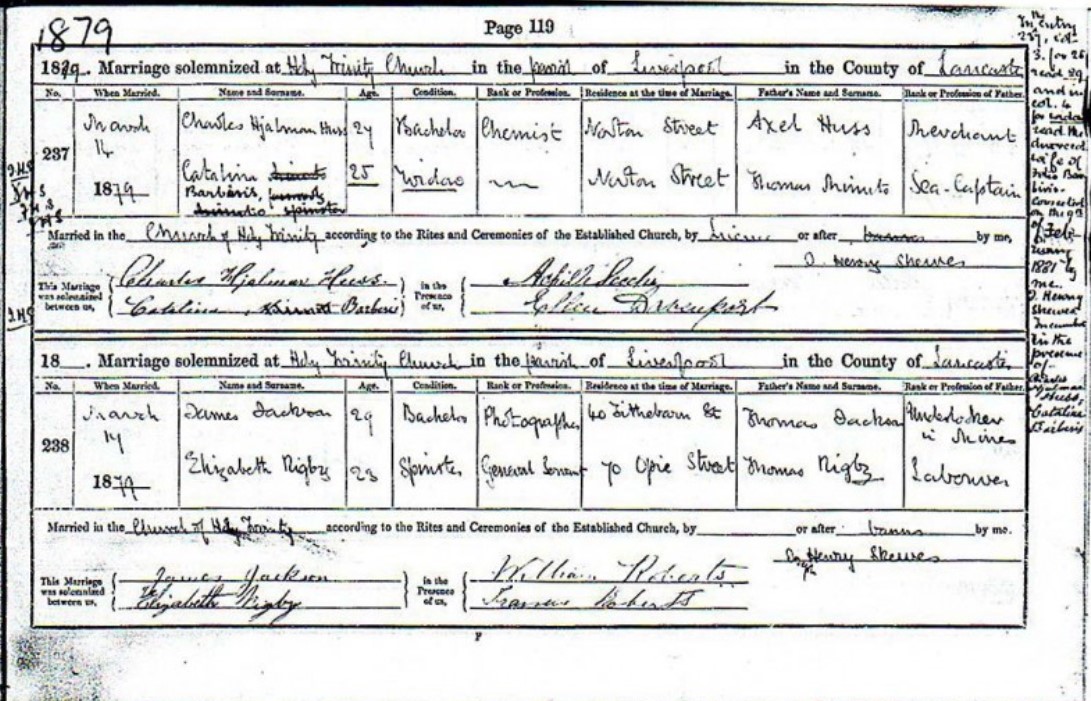 1879
Page 119
1879. Marriage solemnized at Holy Trinity Church in the parish of Liverpool in the County of Lancaster
No. When Married. Name and Surname. Age. Condition. Rank or Profession. Residence at the time of Marriage. Father's Name and Surname. Rank or Profession of Father.
237 March 14 1879 Charles Hjalmar Huss 27 Bachelor Chemist Norton Street Axel Huss Merchant
Catalina Barberis, spinster 25 Widow Norton Street Thomas Minuto Sea-Captain
Married in the Church of Holy Trinity according to the Rites and Ceremonies of the Established Church, by Licence or after banns by me,
J. Henry Skewes
This Marriage was solemnized between us, Charles Hjalmar Huss. in the Presence of us,
Catalina Minuto Barberis Ellen Davenport
18 . Marriage solemnized at Holy Trinity Church in the parish of Liverpool in the County of Lancaster
No. When Married. Name and Surname. Age. Condition. Rank or Profession. Residence at the time of Marriage. Father's Name and Surname. Rank or Profession of Father.
238 March 1879 James Jackson 29 Bachelor Photographer 40 Tithebarn St Thomas Jackson Underlooker in Mines
Elizabeth Rigby 23 Spinster General Servant 70 Opie Street Thomas Rigby Labourer
Married in the Church of Holy Trinity according to the Rites and Ceremonies of the Established Church, by or after banns by me.
Joseph Henry Skewes
This Marriage was solemnized between us, James Jackson in the Presence of us, William Roberts.
Elizabeth Rigby Frances Roberts
P
In entry
237, col.
3. for 26
read 29
and in
col. 4
for widow
read the
divorced
wife of
corrected
on the 9th
of Feb-
ruary
1881 by
me.
J. Henry
Skewes
in the
presence
of
Charles
Hjalmar
Huss,
Catalina
Barberis